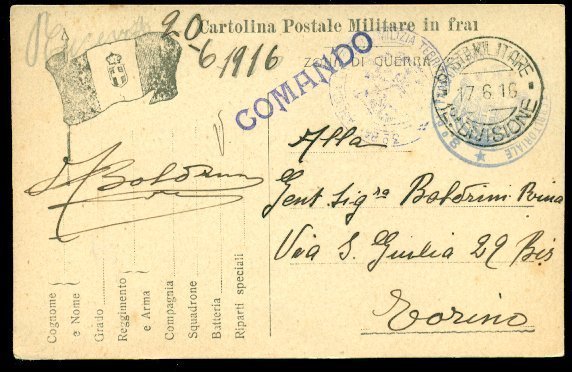 Cartolina Postale Militare in fra
Ricevuta 20
6 1916
ZONA DI GUERRA
COMANDO
POSTA MILITARE
17.6.16
DIVISIONE
MILIZIA
TERRITORIALE
Alla
Gent Sigra Baldrini
Via S. Giulia 29 Bis
Torino
Cognome
e Nome
Grado
Reggimento
e Arma
Compagnia
Squadrone
Batteria
Riparti speciali